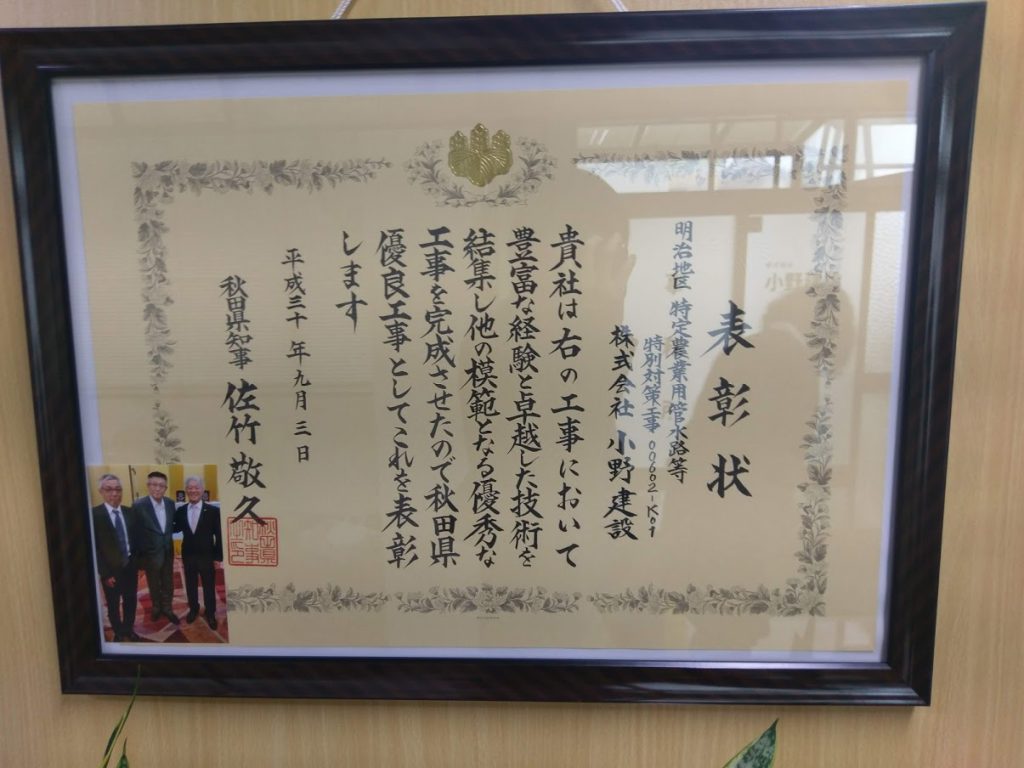 表彰状
明治地区 特定農業用管水路等
特別対策工事 00662-K01
株式会社 小野建設
貴社は右の工事において
豊富な経験と卓越した技術を
結集し他の模範となる優秀な
工事を完成させたので秋田県
優良工事としてこれを表彰
します
平成三十年九月三日
秋田県知事 佐竹敬久
秋田県
知事
之印
小野